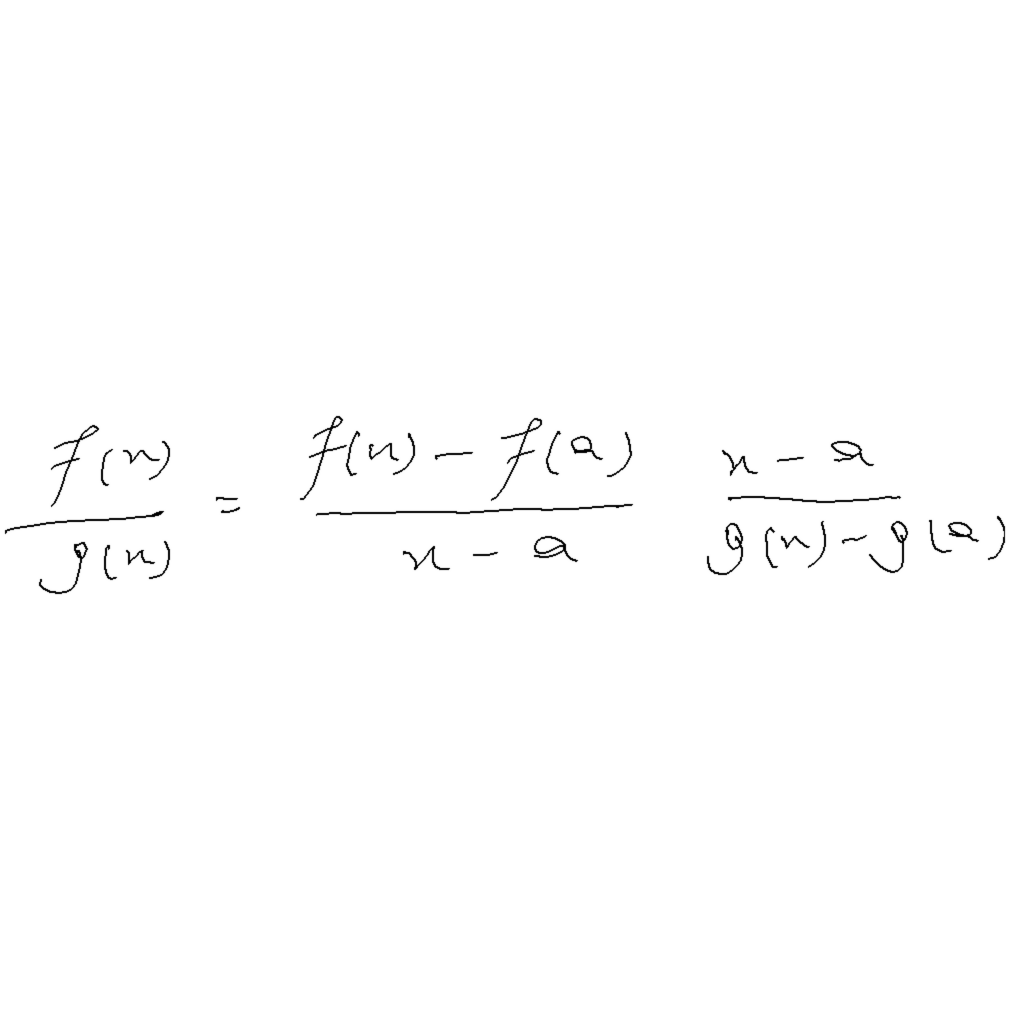 \frac{f(x)}{g(x)} = \frac{f(x) - f(a)}{x - a} \frac{x - a}{g(x) - g(a)}